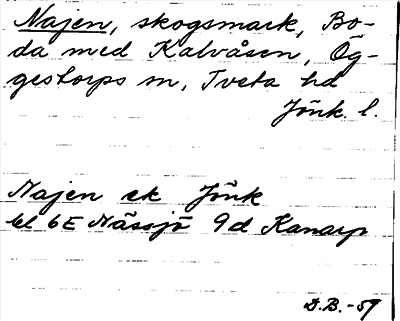 Najen, skogsmark, Bo-
da med Kalvåsen, Ög-
gestorps sn, Tveta hd
Jönk. l.
Najen ek Jönk
bl 6E Nässjö 9d Kanarp
D.B. -59